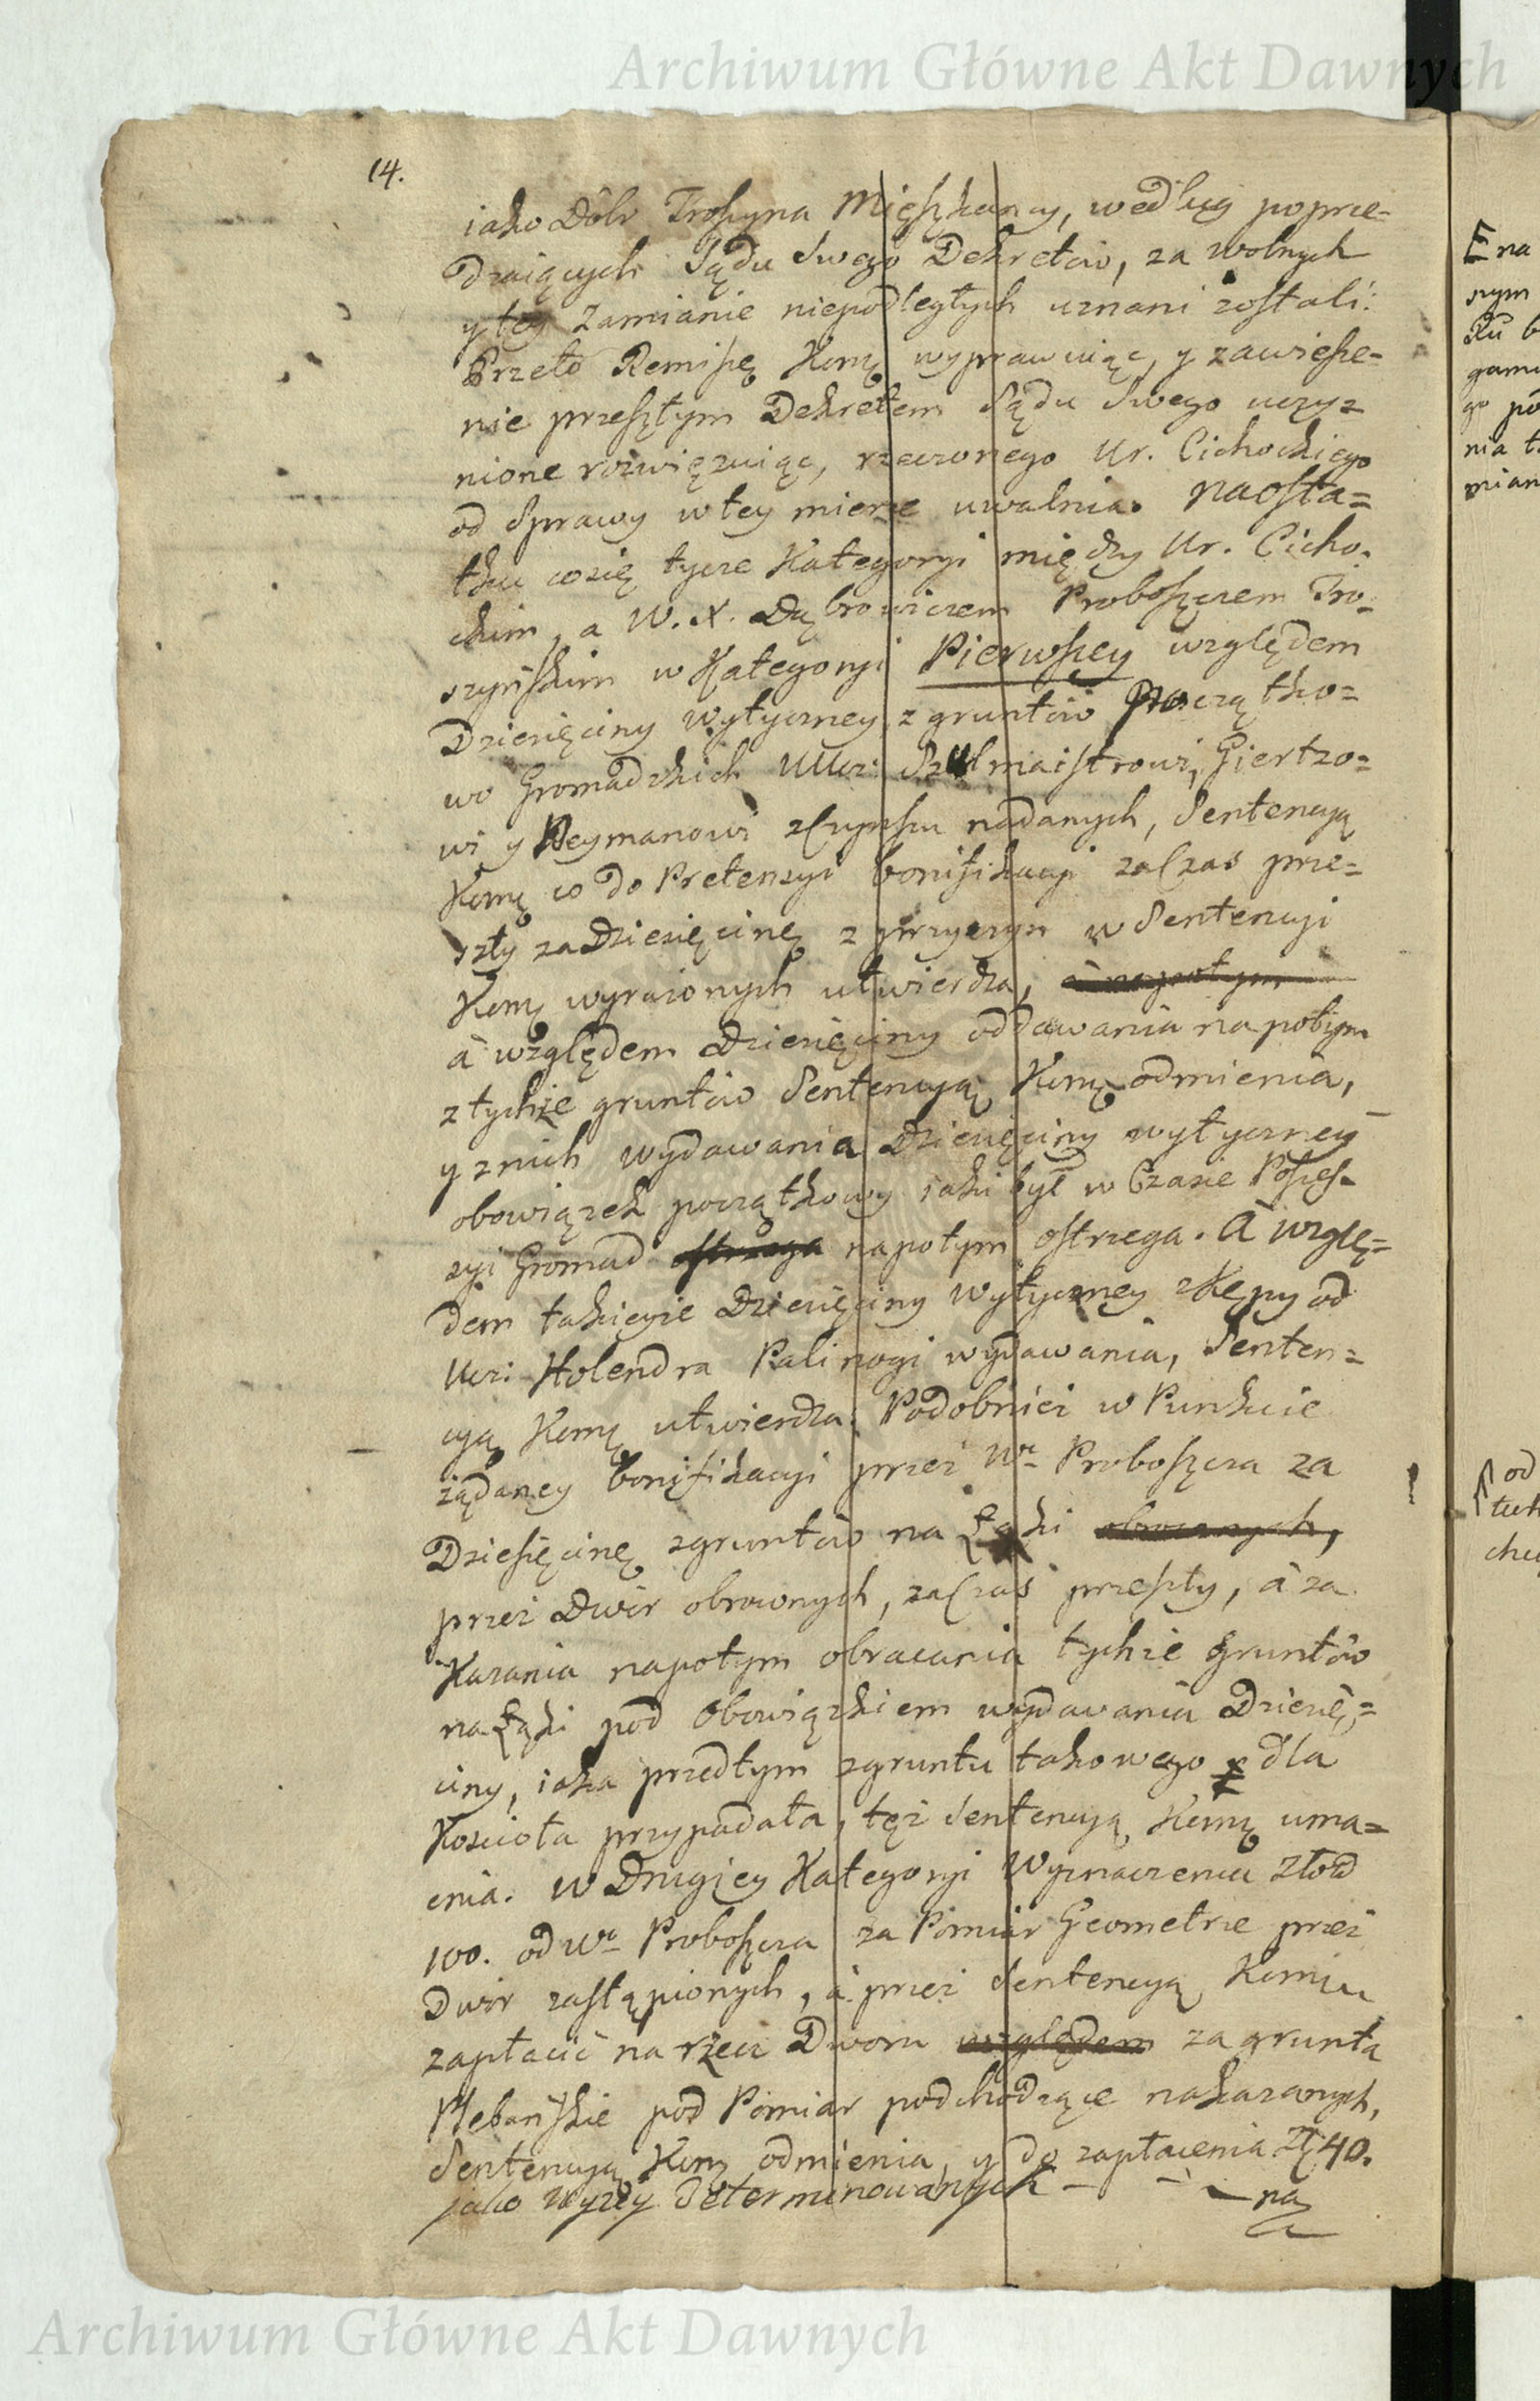 Archiwum Główne Akt Dawnych
14.
iako Dóbr Troszyna Mięszkancy, według poprze-
dzaiących Sądu Swego Dekretów, za wolnych
y tey Zamianie niepodległych uznani zostali:
Przeto Remissę Komę wyprawuiąc, y zawiesze-
nie przeszłym Dekretem Sądu Swego uczy=
nione rozwięzuiąc, rzeczonego Ur. Cichockiego
od Sprawy w tey mierze uwalnia. Naosta=
tku co się tycze Kategoryi między Ur. Cicho-
ckim, a W. X. Dąbrowiczem Proboszczem Tro-
szyńskim w Kategoryi Pierwszey względem
Dziesięciny wytyczney z gruntów Początko=
wo Gromadzkich UUcz: Szulmaistrowi, Giertzo=
wi y Neymanowi z Czynszu nadanych, Sentencyą
Komę co do Pretensyi bonifikacyi za Czas prze=
szły za Dziesięcinę z przyczyn w Sentencyi
Komę wyrażonych utwierdza, a napotym
à względem Dziesięciny oddawania na potym
z tychże gruntów Sentencyą Komę odmienia,
y z nich wydawania Dziesięciny wytyczney
obowiązek początkowy iaki był w Czasie Posses-
syi Gromad ostrzega napotym ostrzega. A wzglę=
dem takieyże Dziesięciny Wytyczney z Kępy od
Ucz: Holendra Palinogi wydawania, Senten=
cyą Komę utwierdza. Podobnież w Punkcie
żądaney bonifikacyi przez Wo Proboszcza za
Dziesięcinę z gruntów na Łąki obroconych,
przez Dwór obroconych, za Czas przeszły, à za
Kazania napotym obracania tychże gruntów
na Łąki pod Obowiązkiem wydawania Dziesię=
ciny, iaka przedtym z gruntu takowego dla
Kościoła przypadała, też Sentencyą Komę uma=
cnia. W Drugiey Kategoryi Wyznaczenia Złotd
100. od Wo Proboszcza za Pomiar Geometrze przez
Dwór zastąpionych, à przez Sentencyą Komiu
zapłacić na rzecz Dworu względem za grunta
Plebańskie pod Pomiar podchodzące nakazanych,
Sentencyą Komę odmienia, y do zapłacenia Zł 40.
jako wyżey determinowanych - - - na
E na
szym
go po
nia t
mian
od
tuk
Archiwum Główne Akt Dawnych